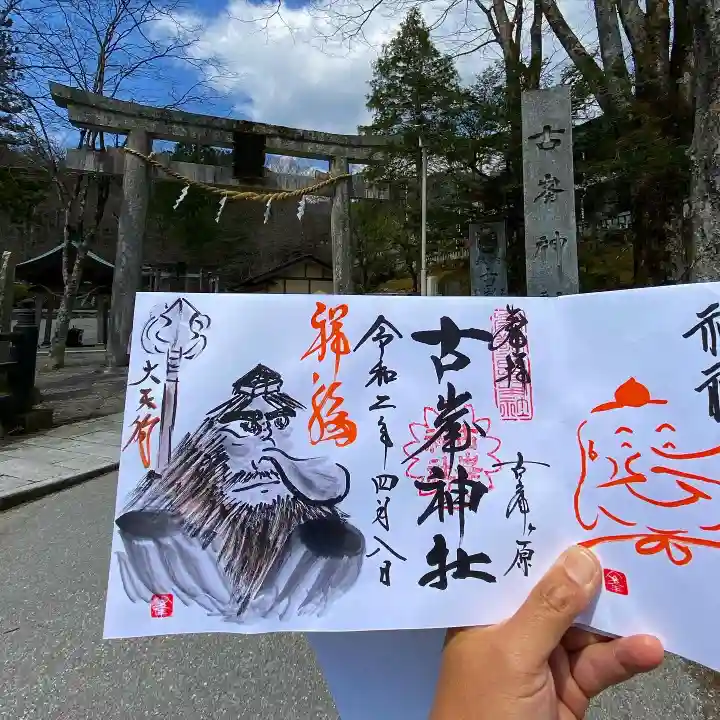 古峯神社
奉拝
古峯ヶ原
古峯神社
令和二年四月八日
祥福
大天狗